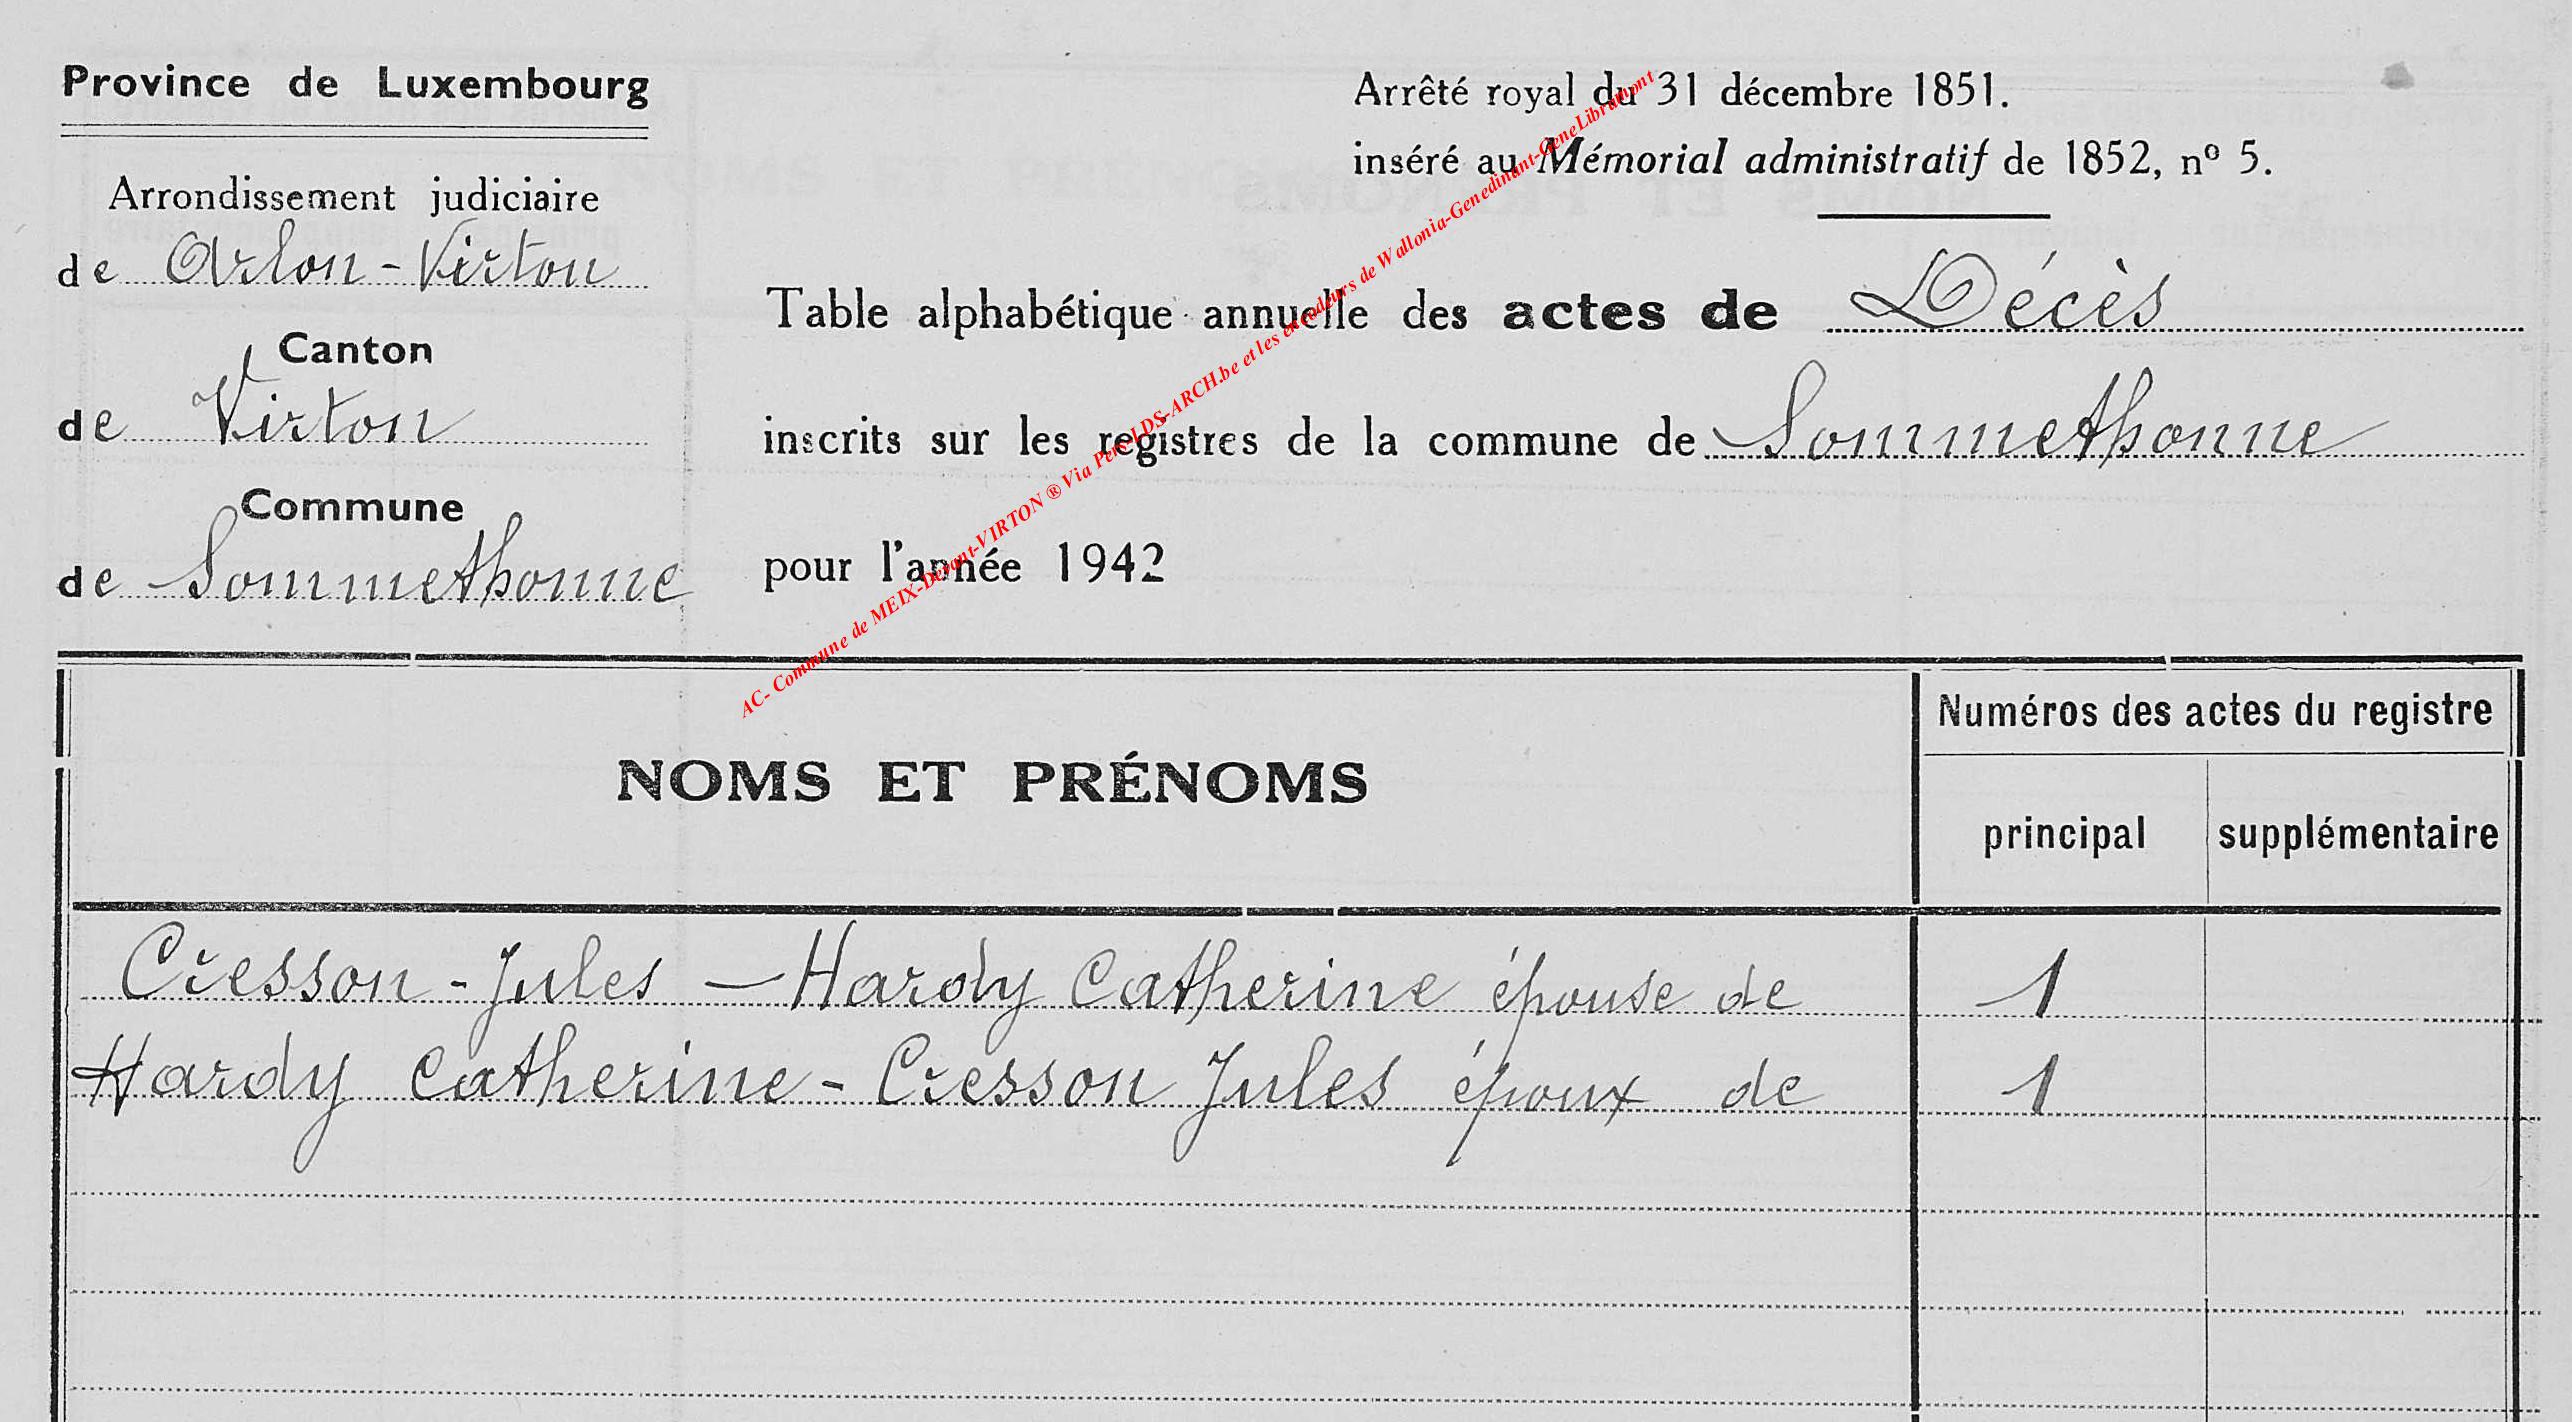 Province de Luxembourg
Arrondissement judiciaire
de Arlon-Virton
Canton
de Virton
Commune
de Sommethonne
Arrêté royal du 31 décembre 1851.
inséré au Mémorial administratif de 1852, nº 5.
Table alphabétique annuelle des actes de Décès
inscrits sur les registres de la commune de Sommethonne
pour l'année 1942
AC- Commune de MEIX-Devant-VIRTON ® Via Pers-LDS-ARCH.be et les encodeurs de Wallonia-Genedinant-GeneLibramont
NOMS ET PRÉNOMS
Numéros des actes du registre
principal
supplémentaire
Cresson - Jules — Hardy Catherine épouse de 1
Hardy Catherine - Cresson Jules époux de 1